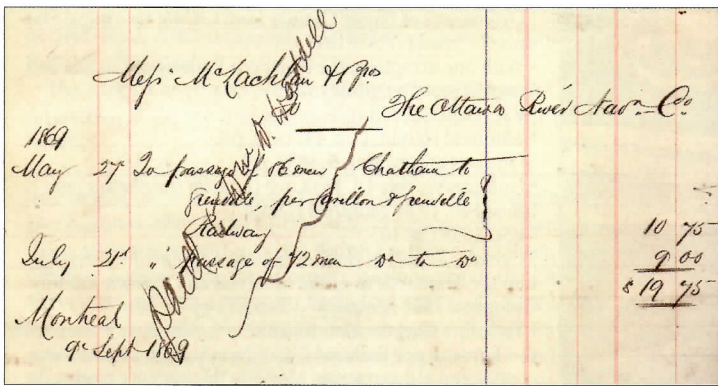 Messrs McLachlin & Bros
The Ottawa River Navn Co.
1869
May 27th To passage of 86 men Chatham to
Grenville, per Carillon & Grenville
Railway 10 75
July 21st " passage of 72 men Do to Do 9 00
$ 19 75
Montreal
9th Sept 1869